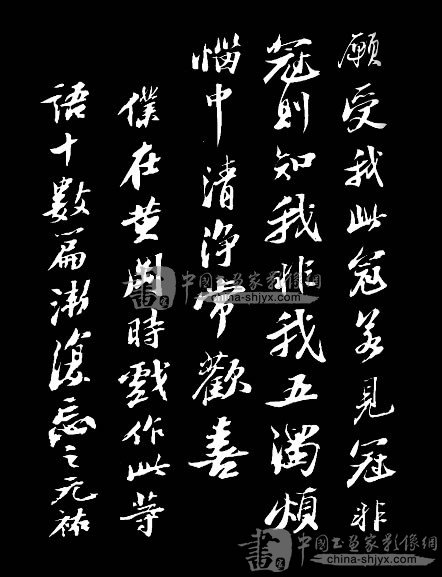 願受我此冠若見冠非
冠則知我非我五濁煩
惱中清浄常歡喜
僕在黄州時戲作此等
語十數篇漸復忘之元祐
中国书画家影像网
china-shjyx.com
中国书画家影像网
china-shjyx.com